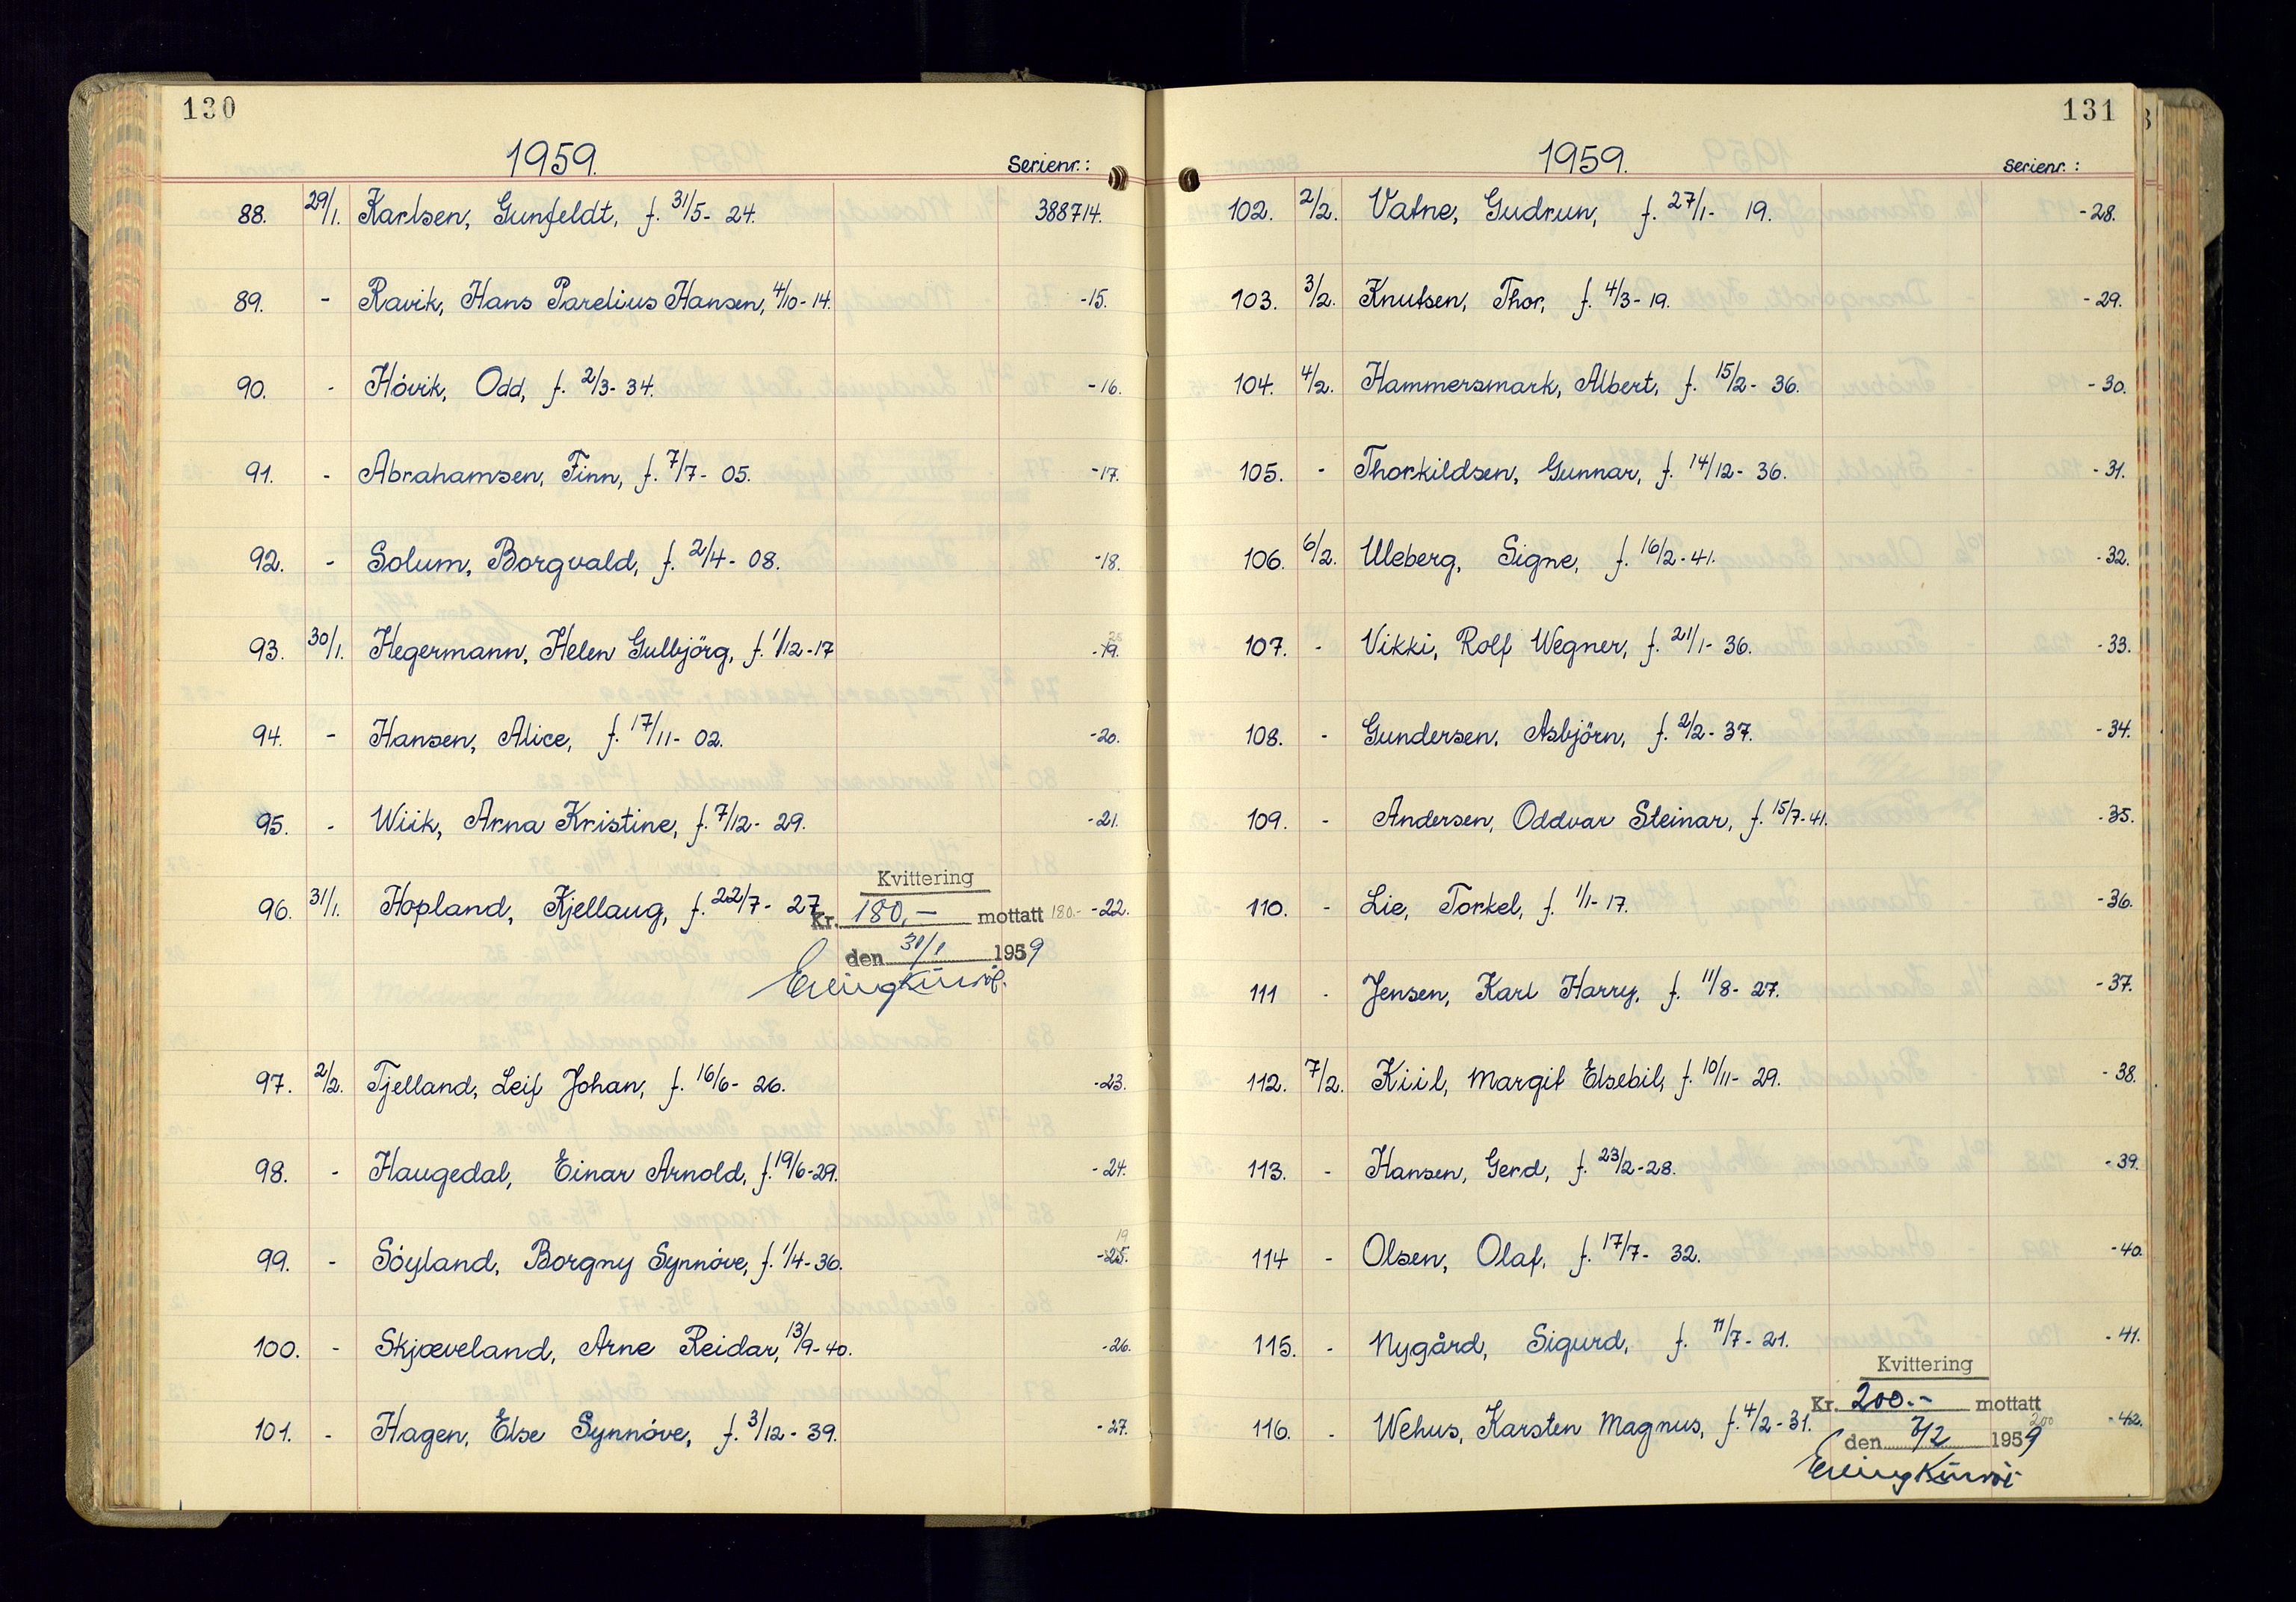 130
1959. Serienr.:
88. 29/1. Karlsen, Gunfeldt, f. 31/5- 24. 388714.
89. - Ravik, Hans Parelius Hansen, 4/10-14. -15.
90. - Hóvik, Odd, f. 2/3-34. -16.
91. - Abrahamsen, Finn, f. 7/7- 05. -17.
92. - Solum, Borgvald, f. 2/4- 08. -18.
93. 30/1. Hegermann, Helen Gulbjörg, f. 1/12-17 -19. 25
94. - Hansen, Alice, f. 17/11- 02. -20.
95. - Wiik, Arna Kristine, f. 7/12- 29. -21.
Kvittering
96. 31/1. Hopland, Kjellaug, f. 22/7- 27. Kr. 180,- mottatt 180.- -22.
den 31/1 1959
97. 2/2. Tjelland, Leif Johan, f. 16/6- 26. -23.
98. - Haugedal, Einar Arnold, f. 19/6-29. -24.
99. - Sóyland, Borgny Synnóve, f. 1/4-36. -25. 19
100. - Skjæveland, Arne Reidar, 13/9-40. -26.
101. - Hagen, Else Synnóve, f. 3/12-39. -27.
131
1959. Serienr.:
102. 2/2. Vatne, Gudrun, f. 27/1- 19. -28.
103. 3/2. Knutsen, Thor, f. 4/3-19. -29.
104. 4/2. Hammersmark, Albert, f. 15/2- 36. -30.
105. - Thorkildsen, Gunnar, f. 14/12- 36. -31.
106. 6/2. Uleberg, Signe, f. 16/2-41. -32.
107. - Vikki, Rolf Wegner, f. 21/1- 36. -33.
108. - Gundersen, Asbjörn, f. 2/2- 37. -34.
109. - Andersen, Oddvar Steinar, f. 15/7-41. -35.
110. - Lie, Torkel, f. 1/1-17. -36.
111 - Jensen, Karl Harry, f. 11/8- 27. -37.
112. 7/2. Kiil, Margit Elsebil, f. 10/11- 29. -38.
113. - Hansen, Gerd, f. 23/2-28. -39.
114 - Olsen, Olaf, f. 17/7- 32. -40.
115. - Nygård, Sigurd, f. 11/7-21. -41.
Kvittering
Kr. 200.- mottatt
116. - Wehus, Karsten Magnus, f. 4/2-31. 200 -42.
den 7/2 1959